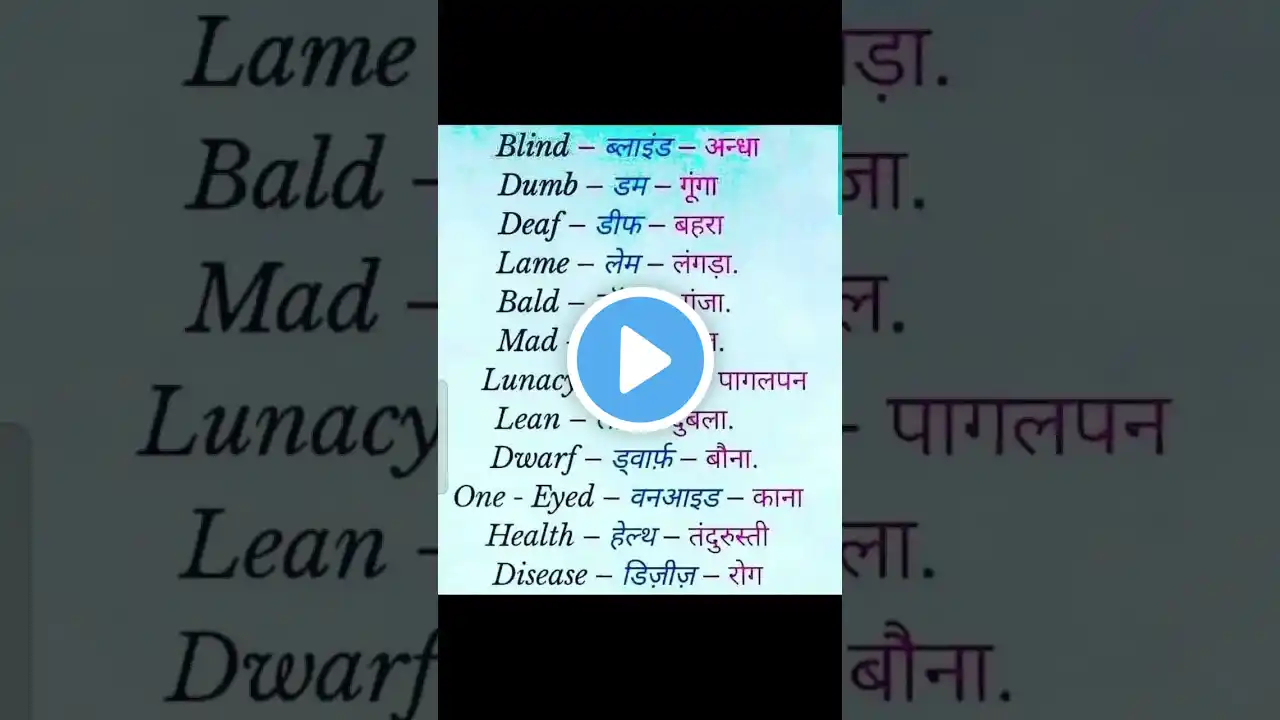 Blind – ब्लाइंड – अन्धा
Dumb – डम – गूंगा
Deaf – डीफ – बहरा
Lame – लेम – लंगड़ा.
Bald – गंजा.
Mad
Lunacy पागलपन
Lean – दुबला.
Dwarf – ड्वार्फ़ – बौना.
One - Eyed – वनआइड – काना
Health – हेल्थ – तंदुरुस्ती
Disease – डिज़ीज़ – रोग
Lame
Bald –
Mad –
Lunacy – पागलपन
Lean –
Dwarf बौना.